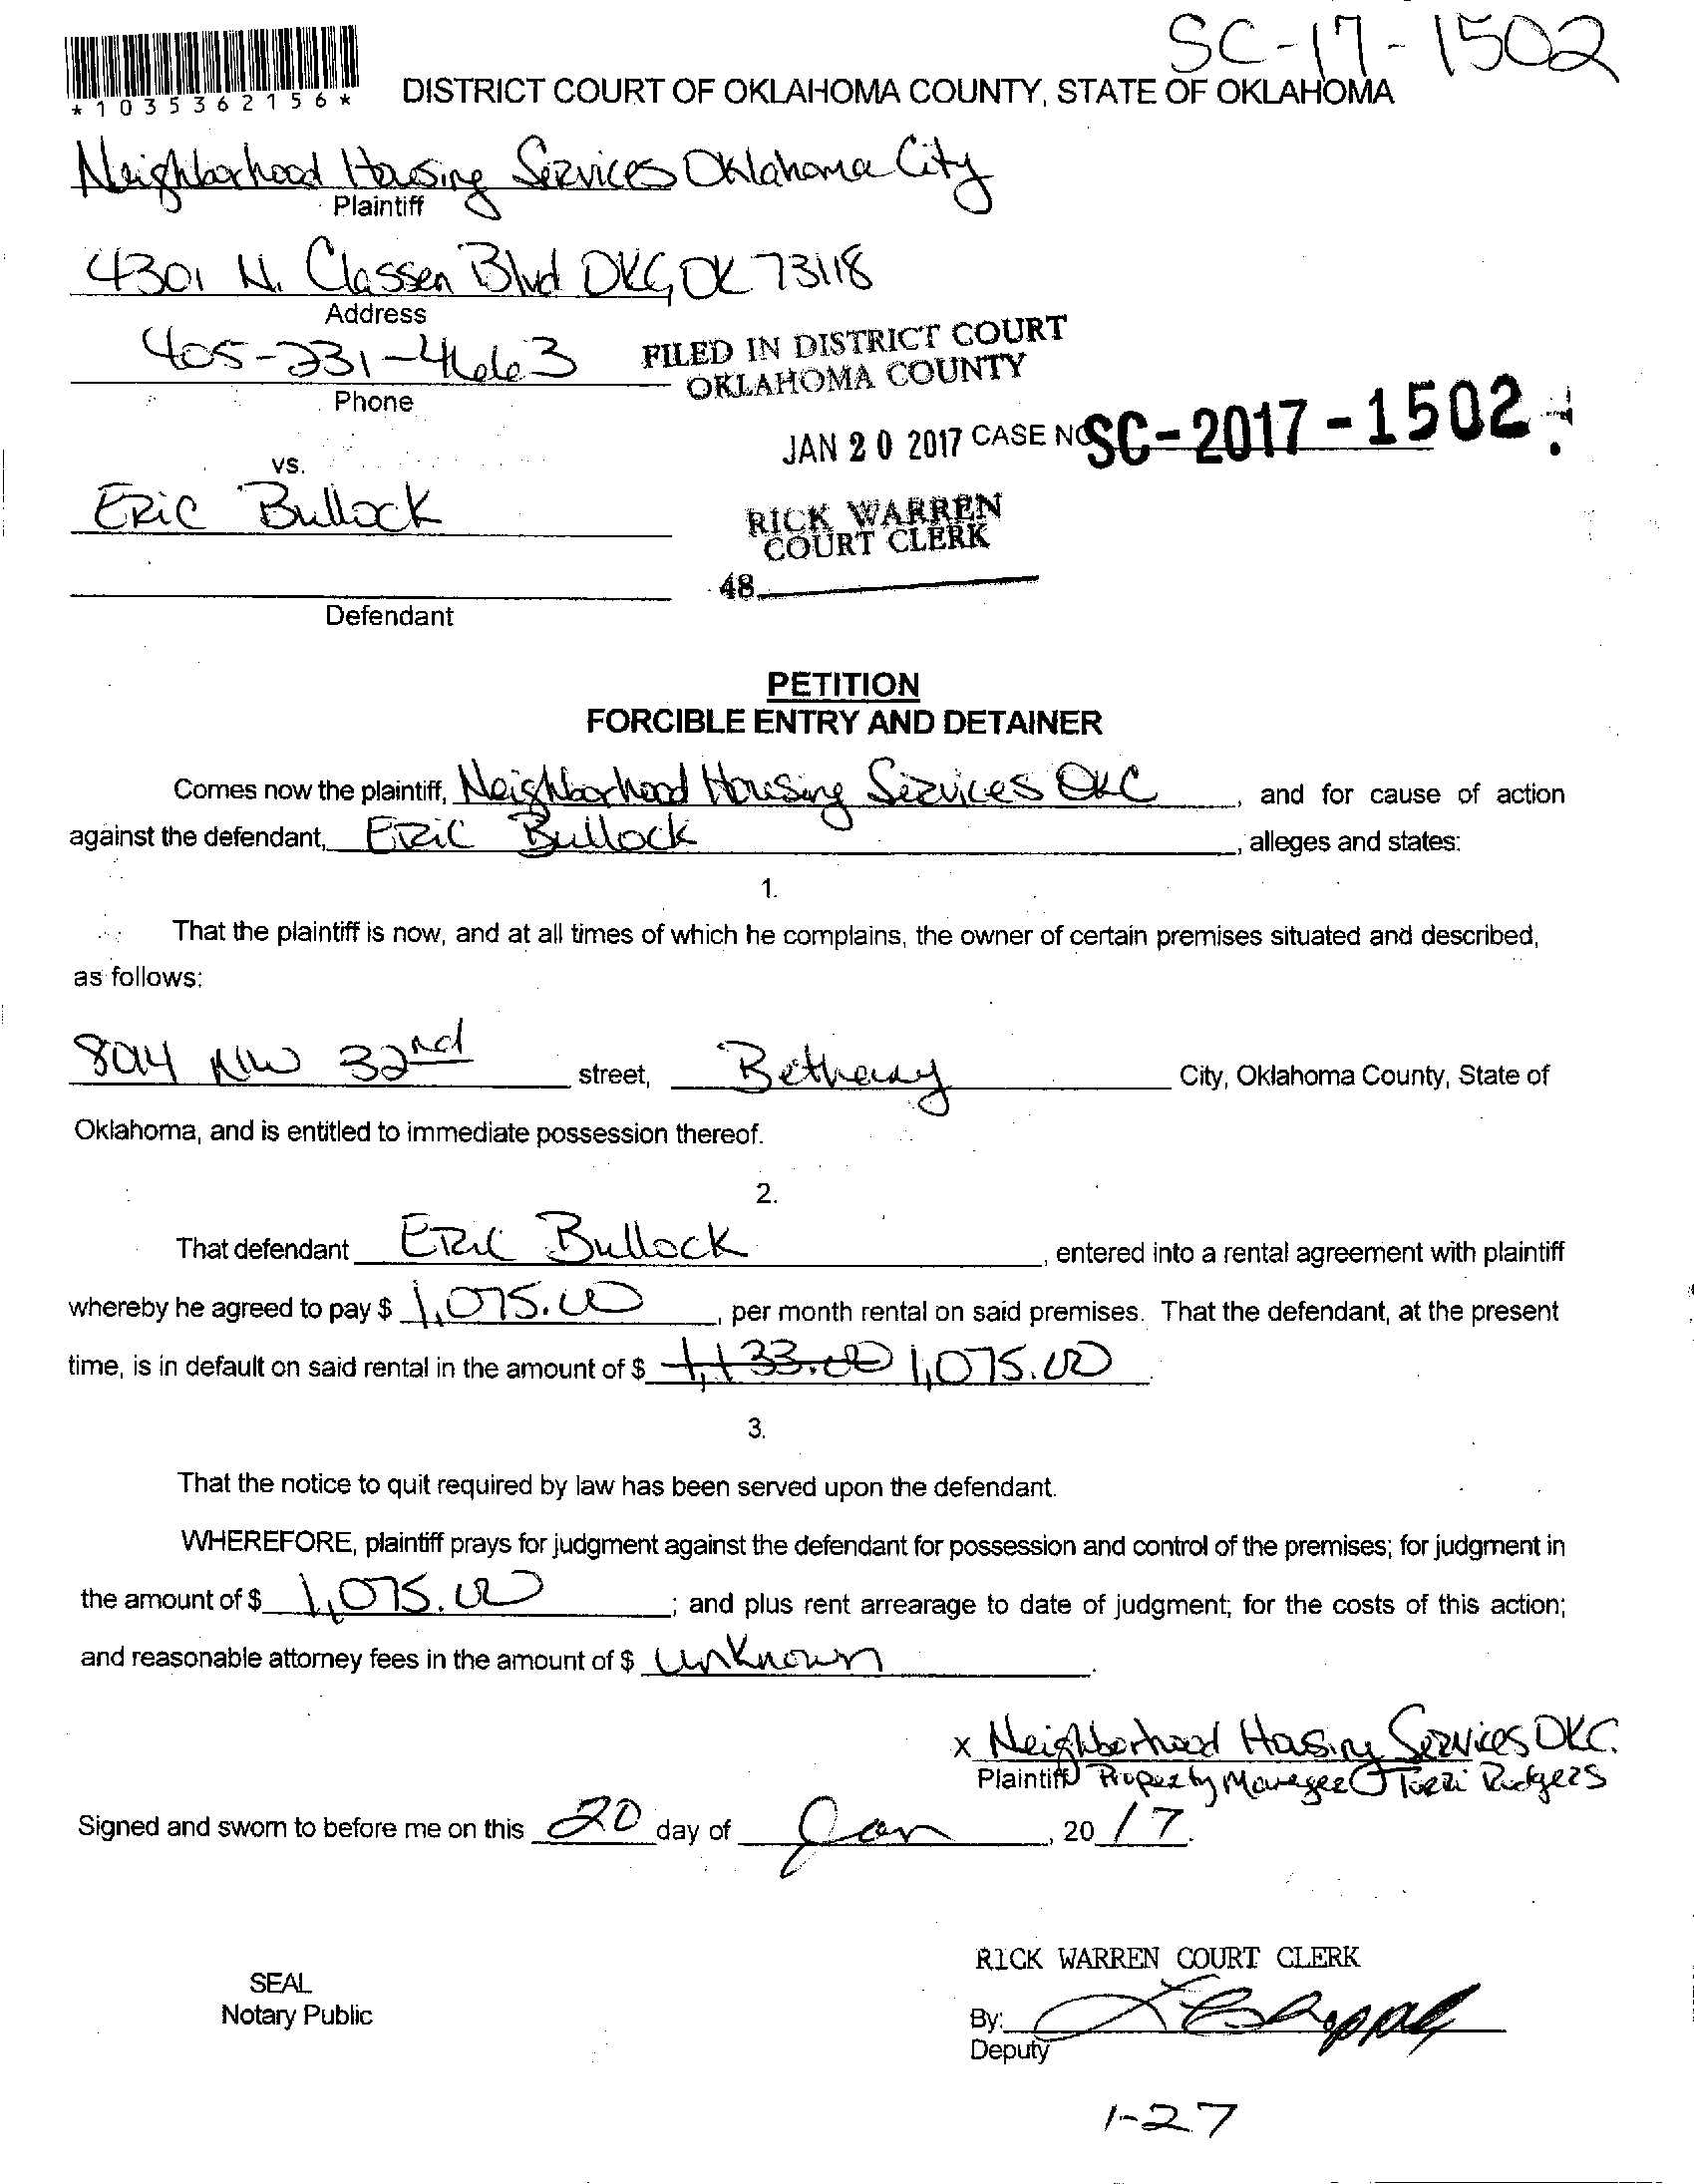 SC-17-1502
*1035362156*
DISTRICT COURT OF OKLAHOMA COUNTY, STATE OF OKLAHOMA
Neighborhood Housing Services Oklahoma City
Plaintiff
4301 N. Classen Blvd OKC, OK 73118
Address
405-231-4663
Phone
FILED IN DISTRICT COURT
OKLAHOMA COUNTY
JAN 20 2017 CASE NO SC-2017-1502
vs.
Eric Bullock
RICK WARREN
COURT CLERK
48
Defendant
PETITION
FORCIBLE ENTRY AND DETAINER
Comes now the plaintiff, Neighborhood Housing Services OKC, and for cause of action
against the defendant, Eric Bullock, alleges and states:
1.
That the plaintiff is now, and at all times of which he complains, the owner of certain premises situated and described,
as follows:
8014 NW 32nd street, Bethany City, Oklahoma County, State of
Oklahoma, and is entitled to immediate possession thereof.
2.
That defendant Eric Bullock, entered into a rental agreement with plaintiff
whereby he agreed to pay $ 1,075.00, per month rental on said premises. That the defendant, at the present
time, is in default on said rental in the amount of $ 1,133.00 1,075.00.
3.
That the notice to quit required by law has been served upon the defendant.
WHEREFORE, plaintiff prays for judgment against the defendant for possession and control of the premises; for judgment in
the amount of $ 1,075.00; and plus rent arrearage to date of judgment; for the costs of this action;
and reasonable attorney fees in the amount of $ unknown.
x Neighborhood Housing Services OKC.
Plaintiff Property Manager Torri Rodgers
Signed and sworn to before me on this 20 day of Jan, 20 17.
RICK WARREN COURT CLERK
SEAL
Notary Public
By:
Deputy
1-27